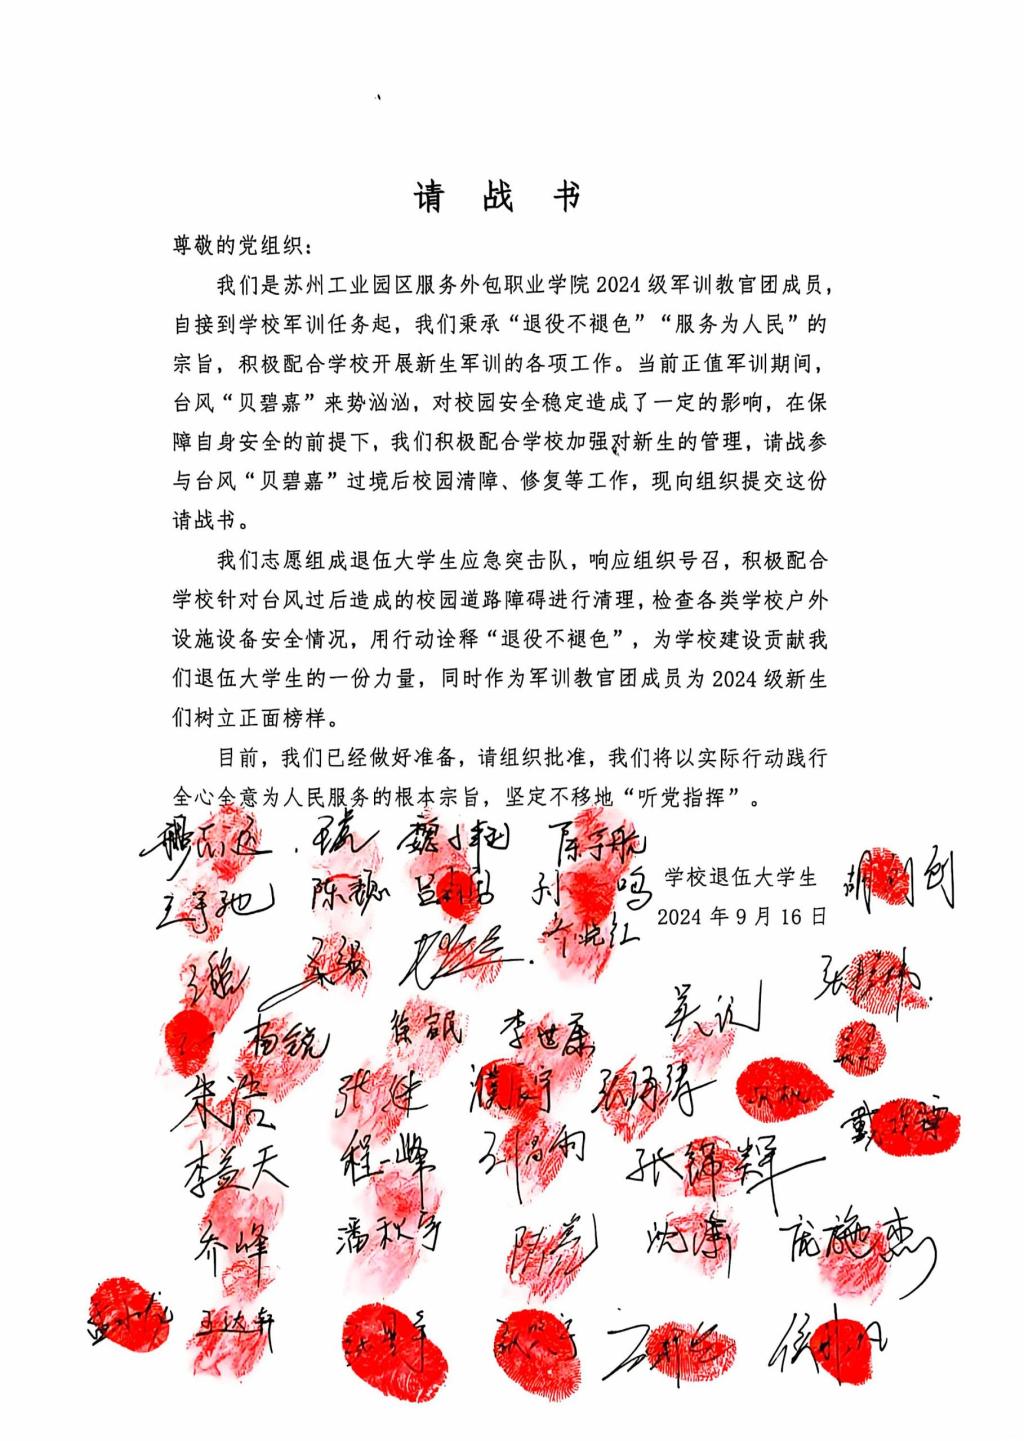 请 战 书
尊敬的党组织：
我们是苏州工业园区服务外包职业学院 2024 级军训教官团成员，
自接到学校军训任务起，我们秉承“退役不褪色”“服务为人民”的
宗旨，积极配合学校开展新生军训的各项工作。当前正值军训期间，
台风“贝碧嘉”来势汹汹，对校园安全稳定造成了一定的影响，在保
障自身安全的前提下，我们积极配合学校加强对新生的管理，请战参
与台风“贝碧嘉”过境后校园清障、修复等工作，现向组织提交这份
请战书。
我们志愿组成退伍大学生应急突击队，响应组织号召，积极配合
学校针对台风过后造成的校园道路障碍进行清理，检查各类学校户外
设施设备安全情况，用行动诠释“退役不褪色”，为学校建设贡献我
们退伍大学生的一份力量，同时作为军训教官团成员为 2024 级新生
们树立正面榜样。
目前，我们已经做好准备，请组织批准，我们将以实际行动践行
全心全意为人民服务的根本宗旨，坚定不移地“听党指挥”。
陈宇航
学校退伍大学生
2024 年 9 月 16 日
王宇驰 陈稳 孙鸣
桑强
杨锐 徐珉 李世康
朱浩
李益天 程一峰 张锦辉
乔峰 潘秋宇 陈亮 沈涛 庞施杰
王达轩